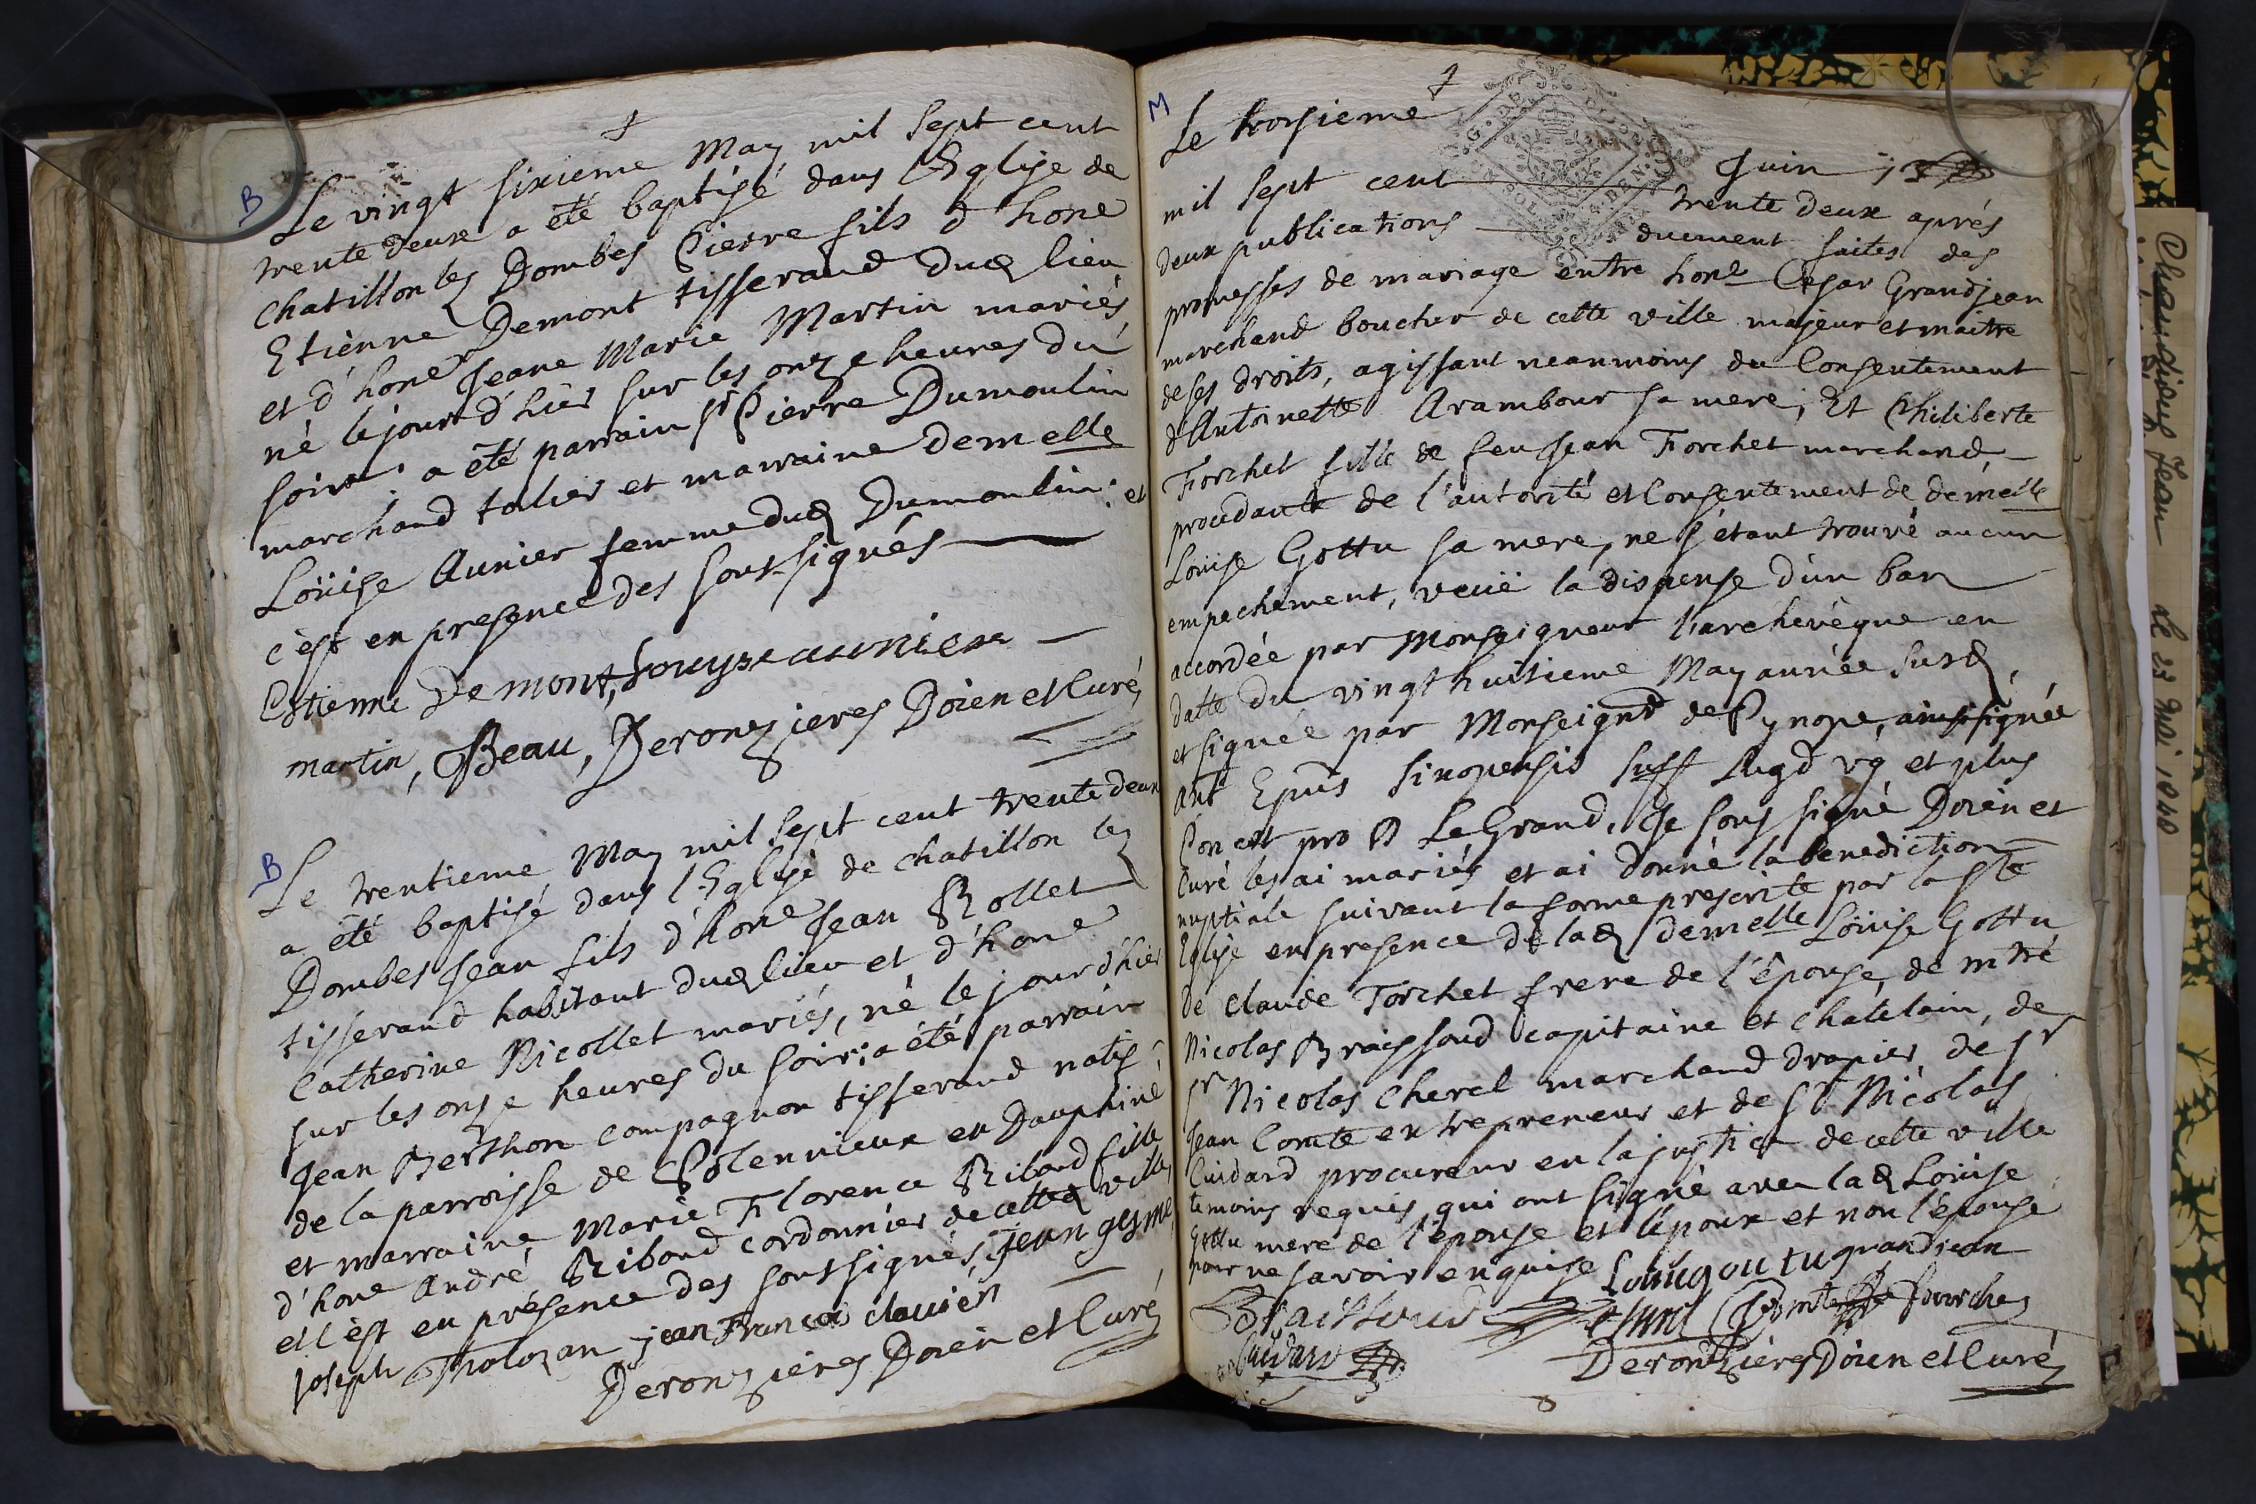 B
Le vingt sixieme May mil sept cent
trente deux a été baptisé dans l'Eglise de
chatillon les Dombes Pierre fils d'hone
Etiènne Demont tisserand dud lieu
et d'hone Jeane Marie Martin mariés
né le jour d'hier sur les onze heures du
soir: a été parrain sr Pierre Dumoulin
marchand tolier et marraine demelle
Loüise Aunier femme dud Dumoulin: et
c'est en presence des soussignés
Estienne Demont, Louyse aunier
martin, Beau, Deronzieres Doien et Curé
B
Le trentieme May mil sept cent trente deux
a été baptisé dans l'Eglise de chatillon les
Dombes Jean fils d'hone Jean Rollet
tisserand habitant dud lieu et d'hone
Catherine Nicollet mariés, né le jour d'hier
sur les onze heures du soir: a été parrain
Jean Berthon compagnon tisserand natif
de la parroisse de Solennieux en Dauphiné
et marraine Marie Florence Riboud fille
d'hone André Riboud cordonnier de cette ville
et c'est en présence des soussignés, jean gesme
joseph Tholozan jean Francois clavier
Deronzieres Doien et Curé
M
Le troisieme Juin
mil sept cent trente deux aprés
deux publications duement faites des
promesses de mariage entre hone Cesar Grandjean
marchand boucher de cette ville majeur et maitre
de ses droits, agissant neanmoins du Consentement
d'Antoinette Arambour sa mere; Et Philiberte
Forchet fille de feu Jean Forchet marchand
procedante de l'autorité et Consentement de demelle
Loüise Gottu sa mere, ne s'étant trouvé aucun
empechement, veüe la dispense d'un ban
accordée par Monseigneur l'archevèque en
datte du vingt huitieme May année susd
et signée par Monseignr de Synope, ainsi signée
ant Epus sinopensis suff Lugd vg et plus
Con est pro D LeGrand, Je sous signé Doien et
Curé les ai mariés et ai donné la benediction
nuptiale suivant la forme prescrite par la ste
Eglise en presence de lad demelle Loüise Gottu
de Claude Forchet frere de l'épouse, de mtre
Nicolas Braissoud capitaine et chatelain, de
sr Nicolas Cherel marchand drapier, de sr
Jean Comte entrepreneur et de sr Nicolas
Cuidard procureur en la justice de cette ville
temoins requis qui ont signé avec lad Loüise
Gottu mere de l'épouse et l'époux et non l'épouse
pour ne savoir enquise Louise goutu grandjean
Braissoud Cherel Comte fourchet
Cuidard
Deronzieres Doien et Curé
Jean Le 23 mai 1840